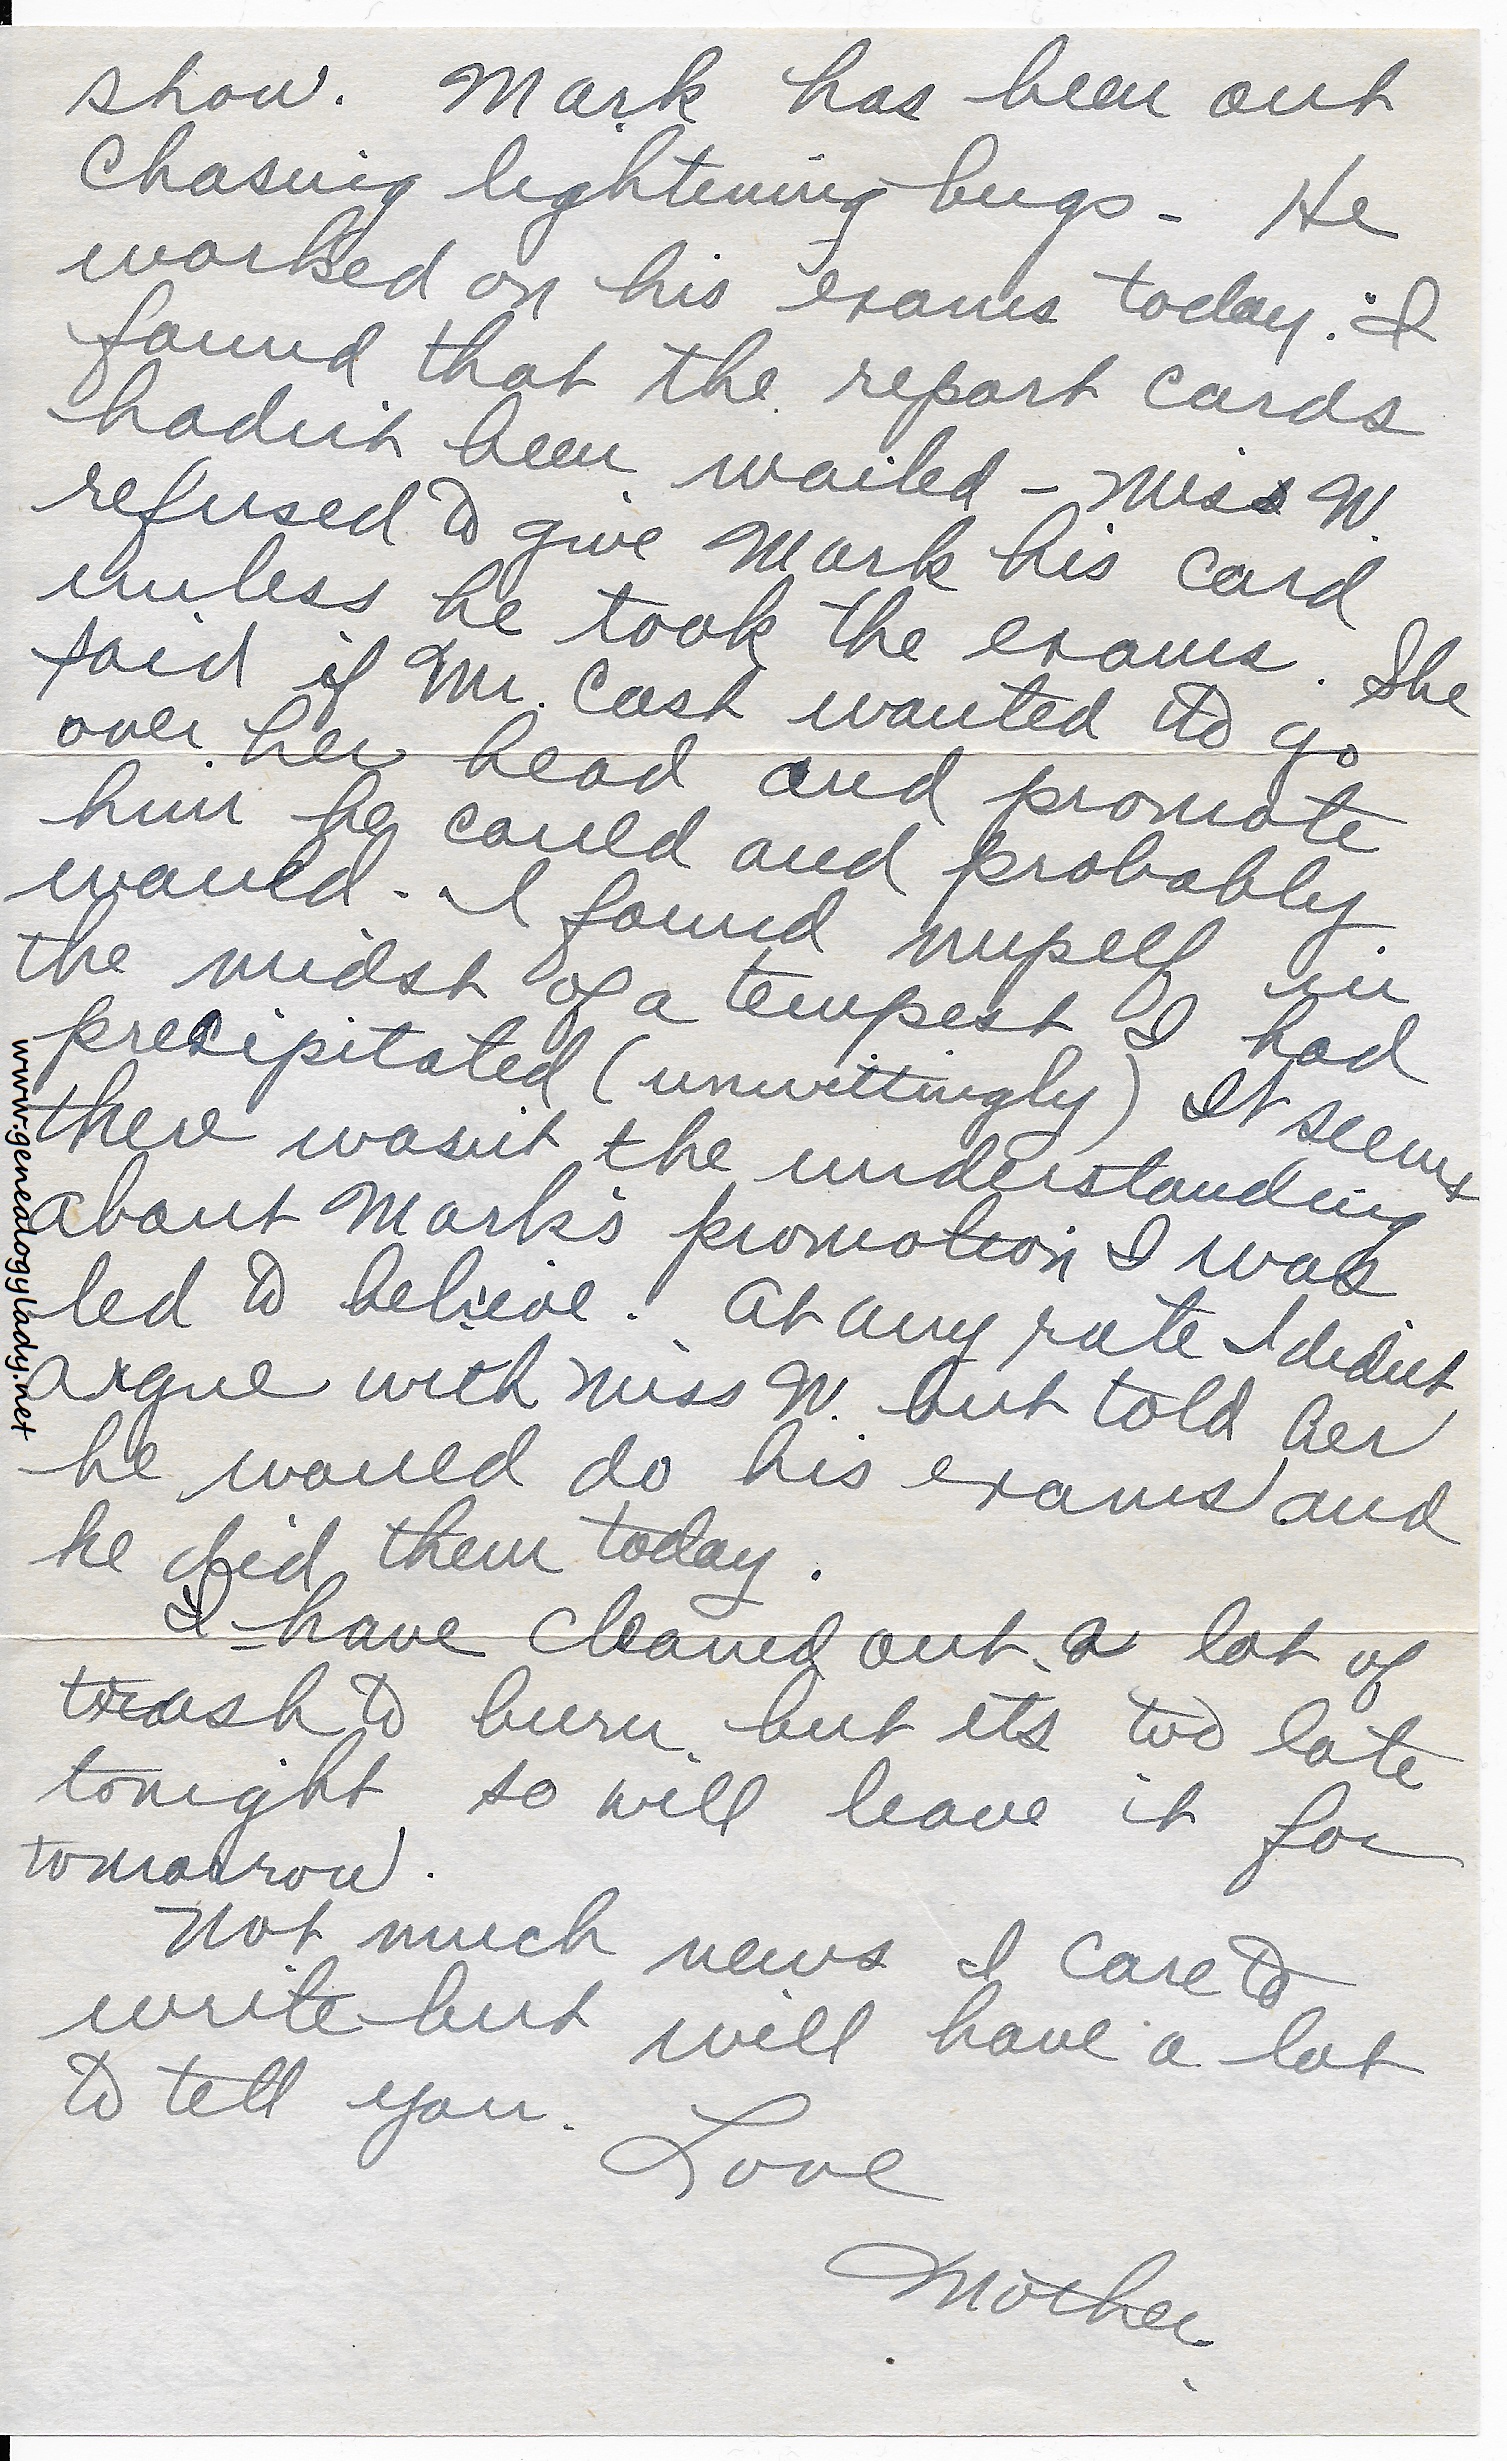 show. Mark has been out
chasing lightening bugs - He
worked on his exams today. I
found that the report cards
hadn't been mailed - Miss W.
refused to give Mark his card
unless he took the exams. She
said if Mr. Cash wanted to go
over her head and promote
him he could and probably
would. I found myself in
the midst of a tempest I had
precipitated (unwittingly) It seems
there wasn't the understanding
about Mark's promotion I was
led to believe. At any rate I didn't
argue with Miss W. but told her
he would do his exams and
he did them today.
I have cleaned out a lot of
trash to burn but its too late
tonight so will leave it for
tomorrow.
Not much news I care to
write but will have a lot
to tell you.
Love
Mother
www.genealogylady.net